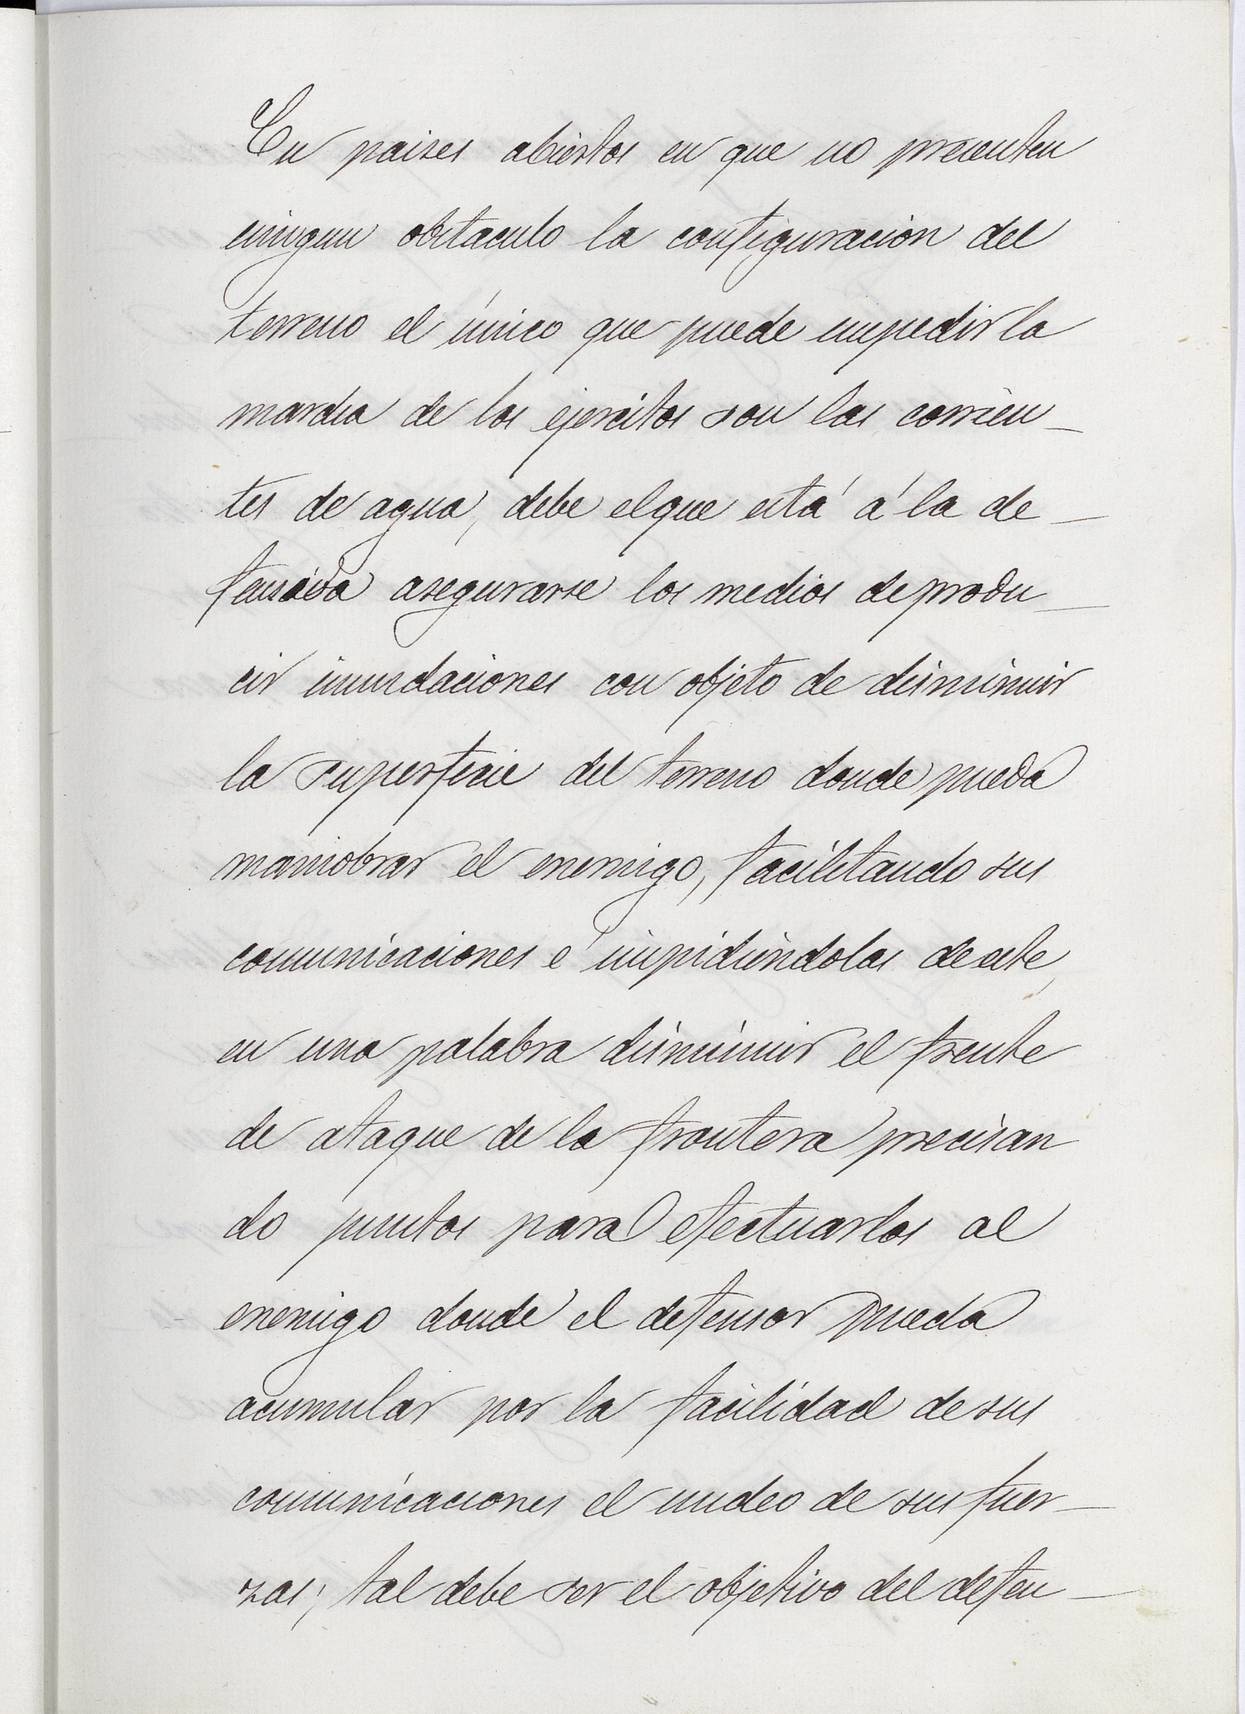 En paises abiertos en que no presenten
ningun obstaculo la configuración del
terreno el único que puede impedir la
marcha de los ejercitos son las corrien_
tes de agua, debe el que está á la de_
fensiva asegurarse los medios de produ_
cir inundaciones con objeto de disminuir
la superficie del terreno donde pueda
maniobrar el enemigo, facilitando sus
comunicaciones é impidiendolas de este,
en una palabra disminuir el frente
de ataque de la frontera precisan
do puntos para efectuarlos al
enemigo donde el defensor pueda
acumular por la facilidad de sus
comunicaciones el nucleo de sus fuer_
zas; tal debe ser el objetivo del defen_